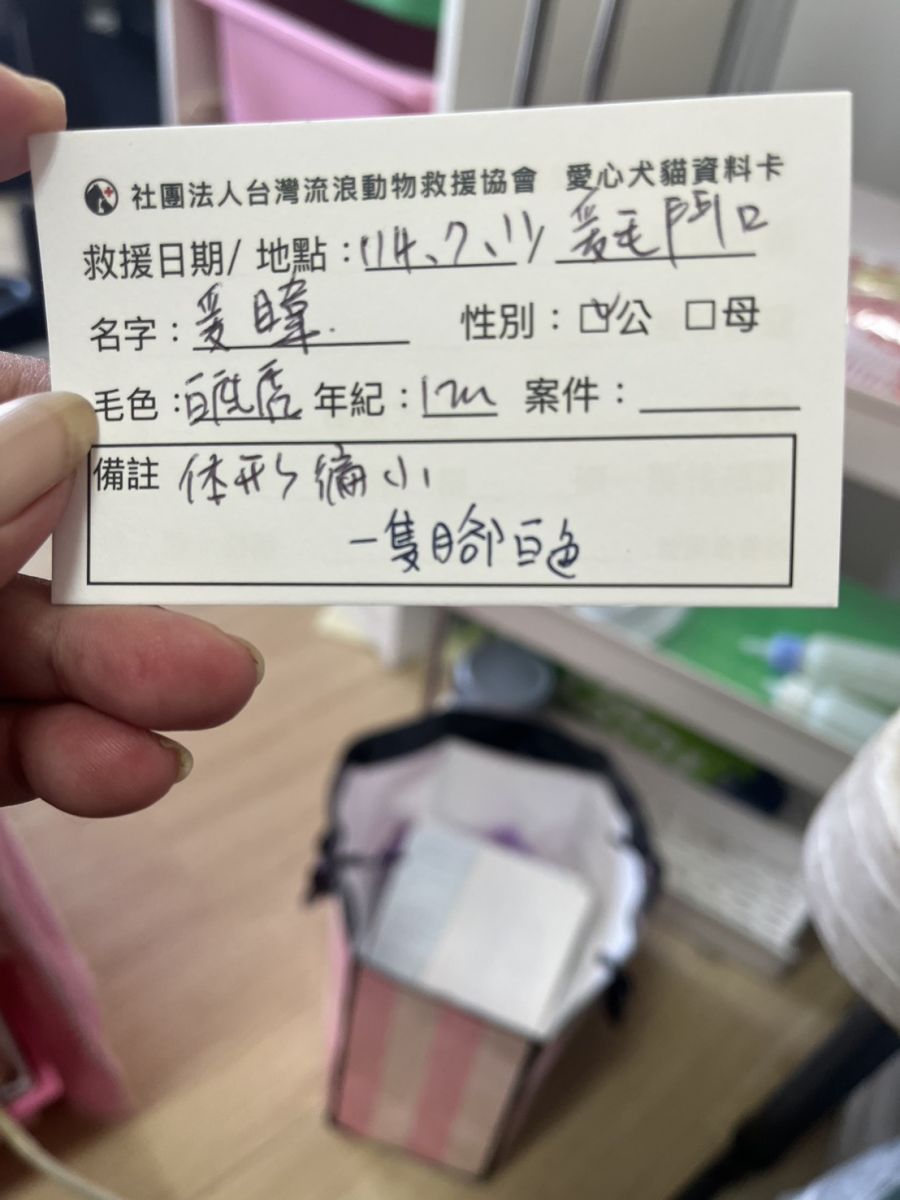 社團法人台灣流浪動物救援協會 愛心犬貓資料卡
救援日期/ 地點：114、7、11/ 爰毛門口
名字：爰暐 性別：☑公 ☐母
毛色：白底虎 年紀：1m 案件：
備註 体形偏小
一隻腳白色